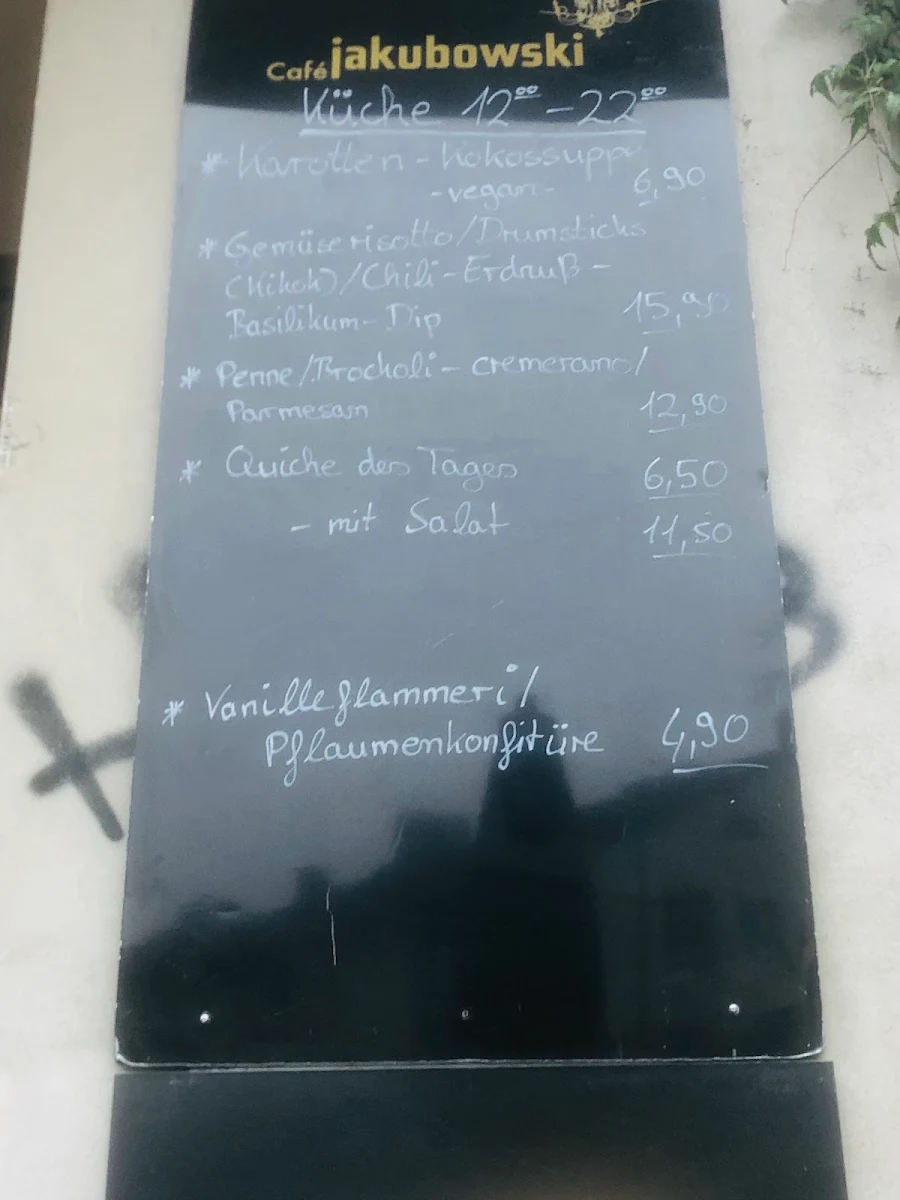 Café jakubowski
Küche 12⁰⁰ - 22⁰⁰
* Karotten - Kokossuppe
- vegan - 6,90
* Gemüserisotto/Drumsticks
(Kikok)/Chili - Erdnuß -
Basilikum - Dip 15,90
* Penne/Brocholi - cremerano/
Parmesan 12,90
* Quiche des Tages 6,50
- mit Salat 11,50
* Vanilleflammeri/
Pflaumenkonfitüre 4,90